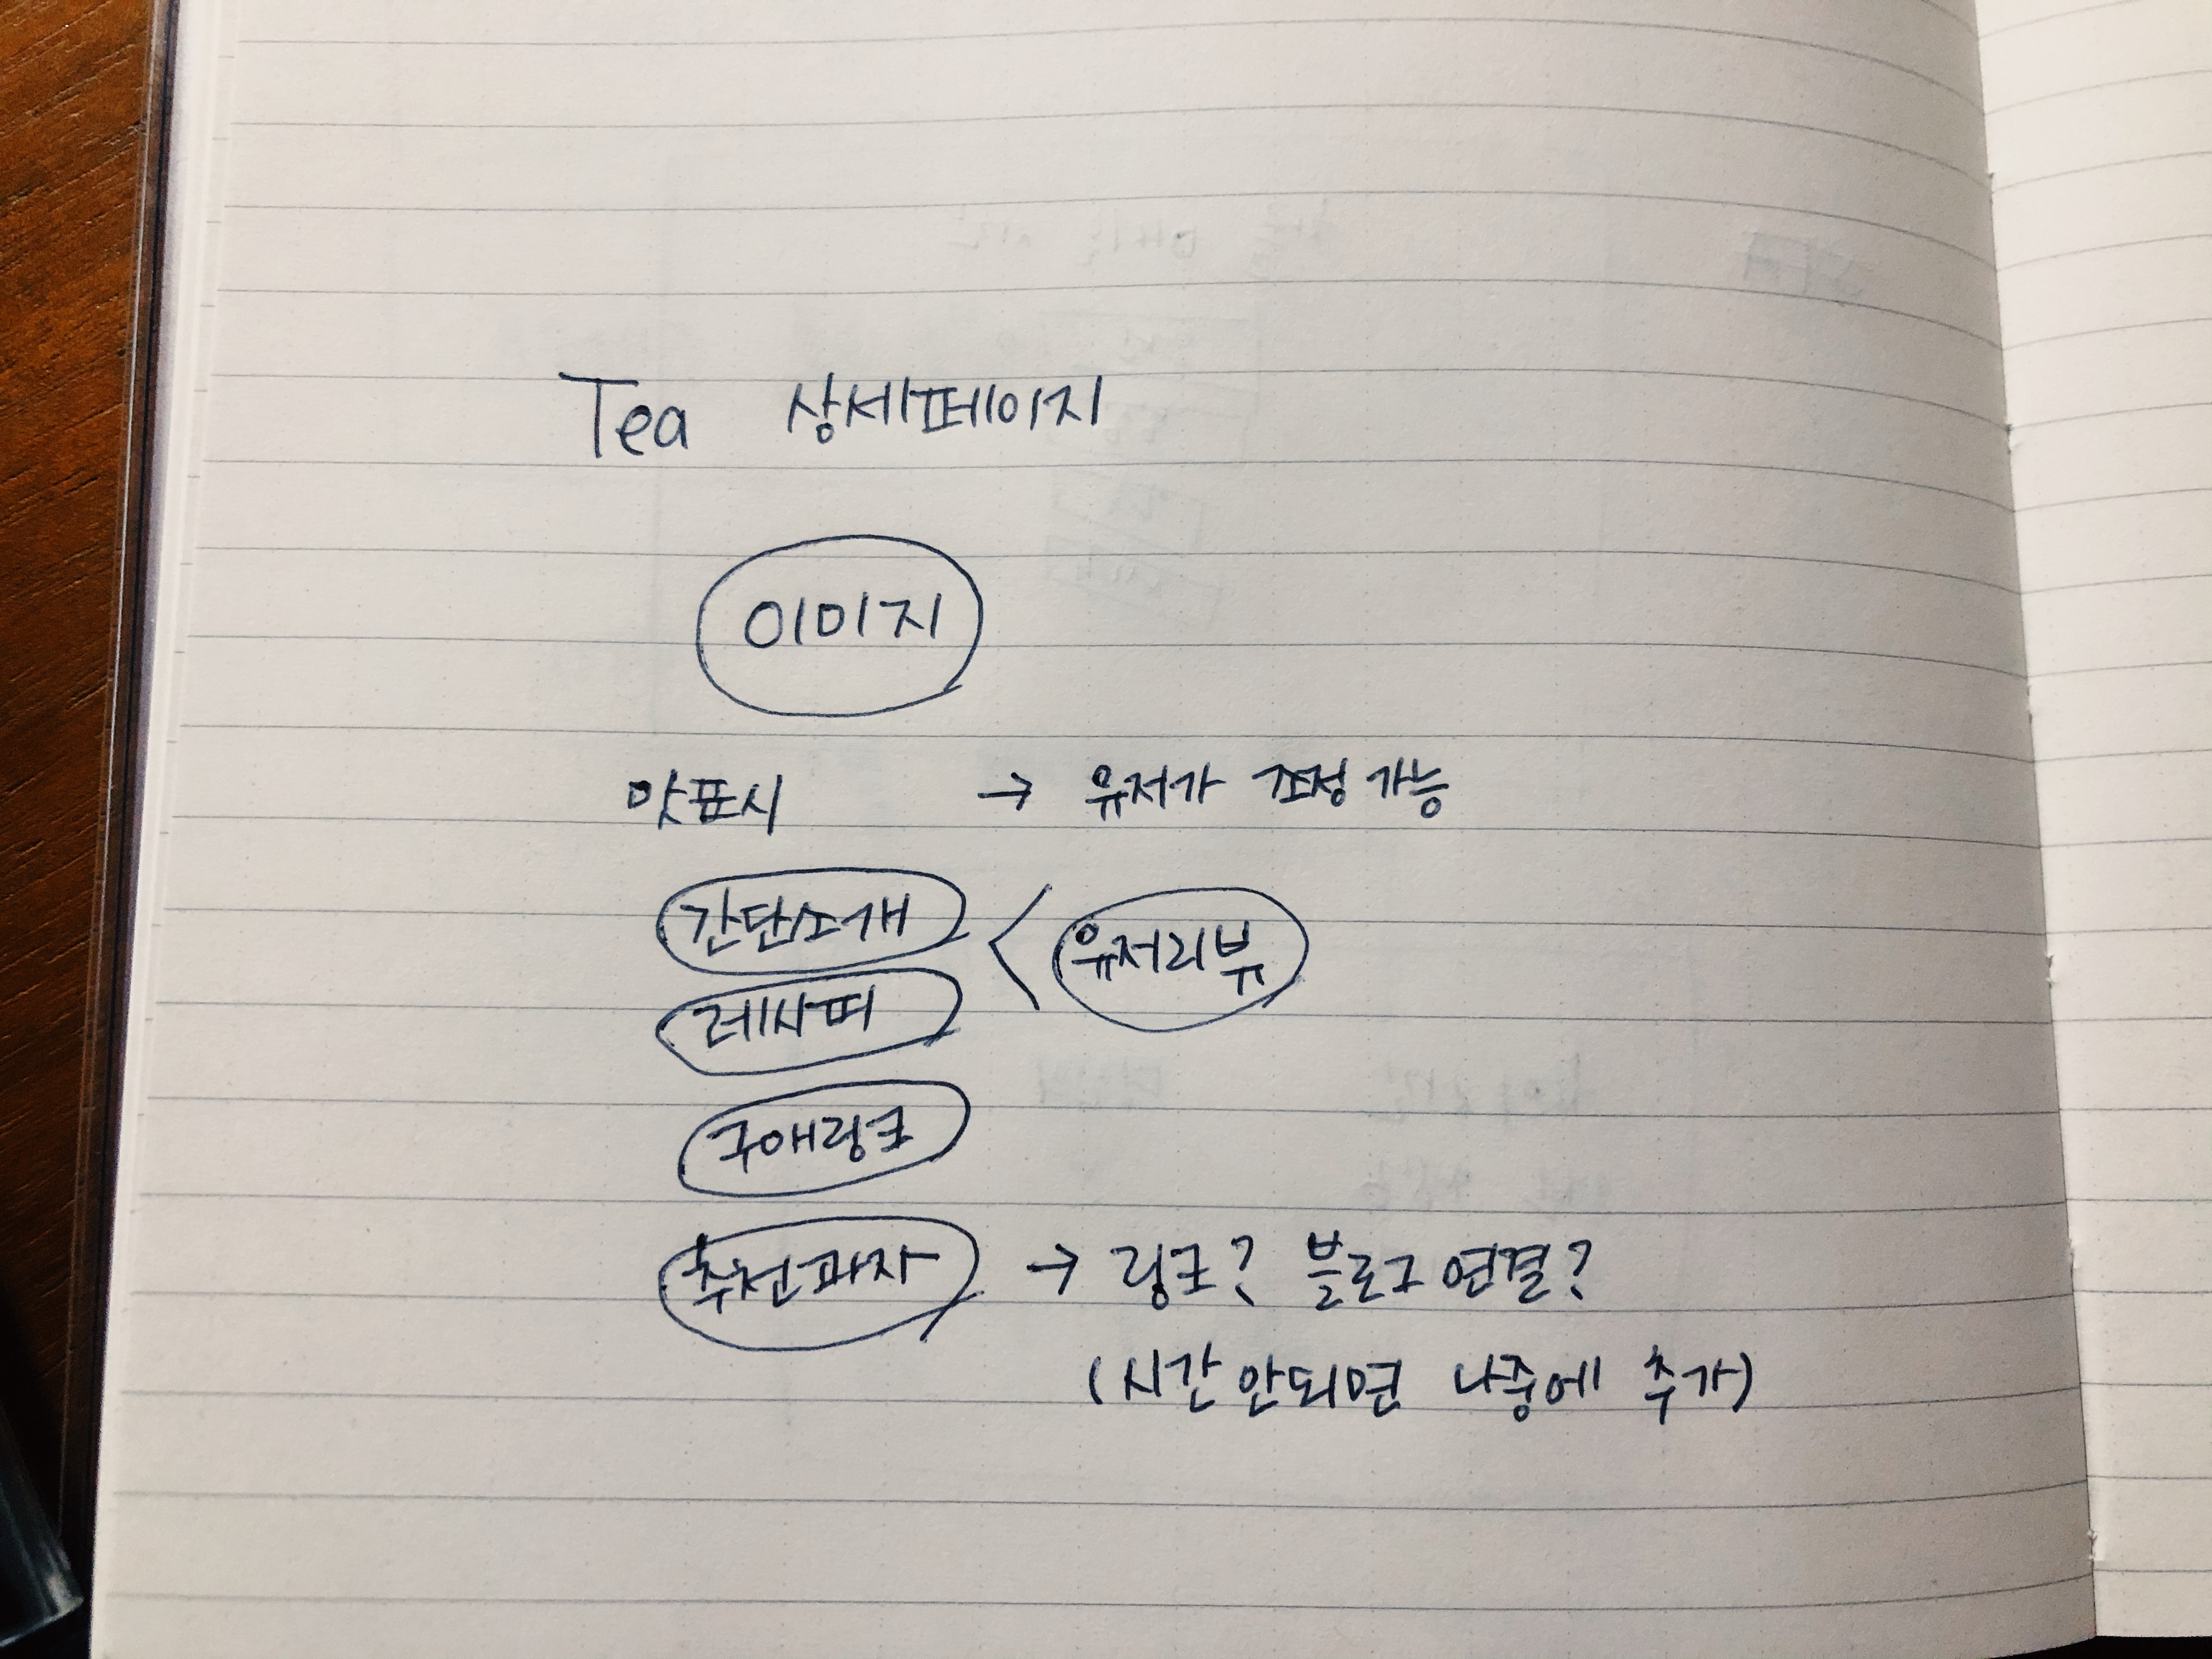 Tea 상세페이지
이미지
맛표시 → 유저가 조정 가능
간단소개
유저리뷰
레시피
구매링크
추천과자 → 링크? 블로그 연결?
(시간 안되면 나중에 추가)